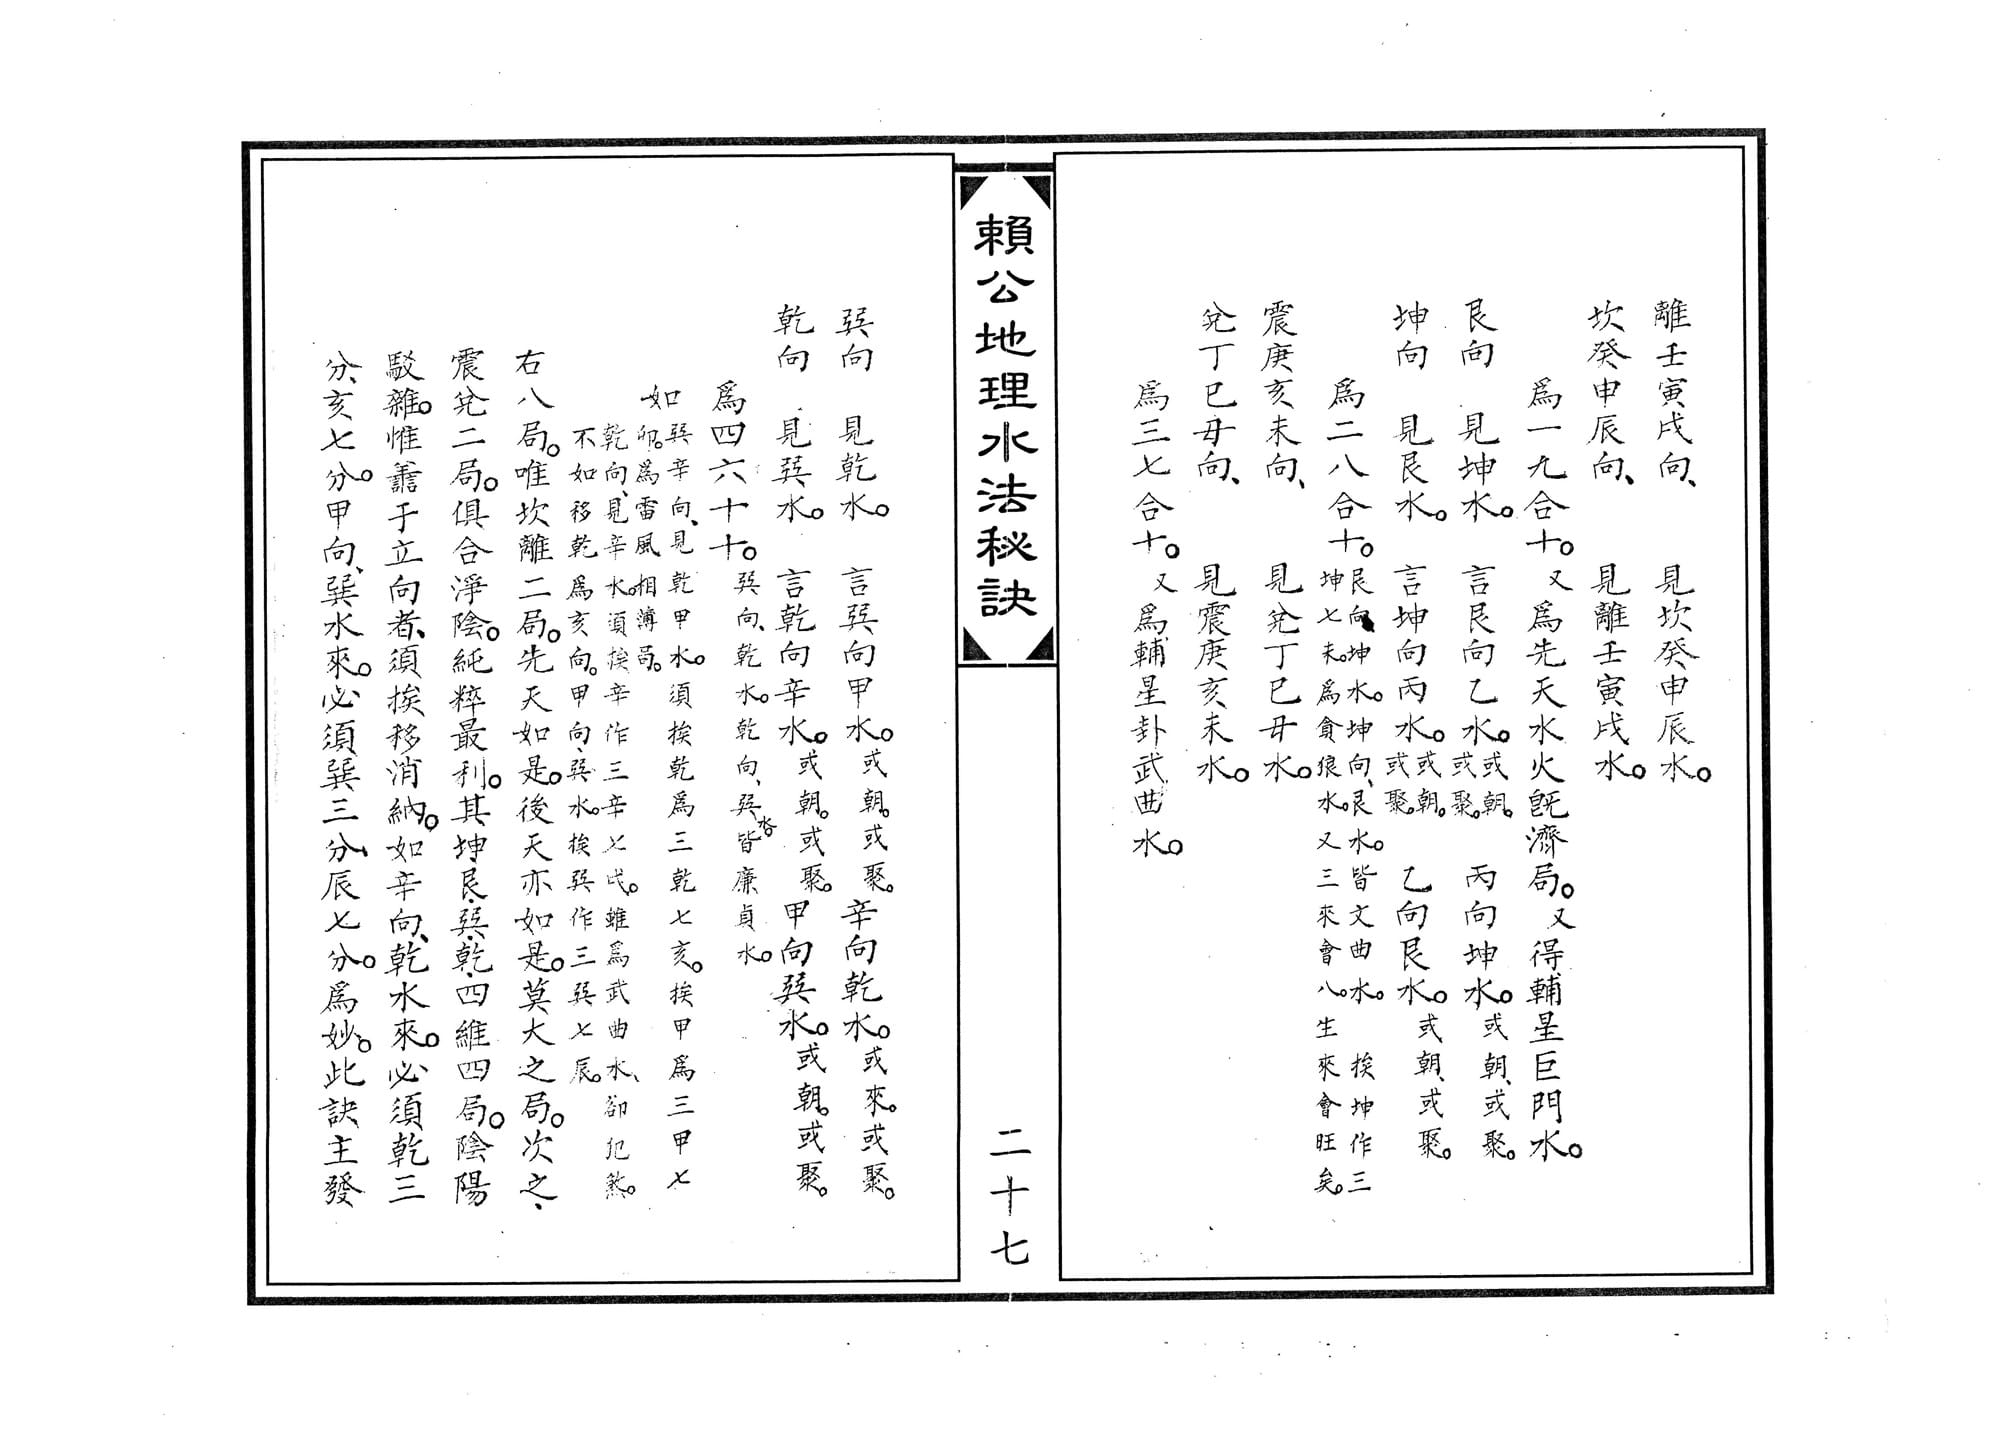 離壬寅戌向、　見坎癸申辰水。
坎癸申辰向、　見離壬寅戌水。
為一九合十。又為先天水火旣濟局。又得輔星巨門水。
艮向　見坤水。　言艮向乙水。或朝。或聚。　丙向坤水。或朝、或聚。
坤向　見艮水。　言坤向丙水。或朝。或聚。　乙向艮水。或朝、或聚。
為二八合十。艮向坤水。坤向、艮水。皆文曲水。　挨坤作三
坤七未。為貪狼水。又三來會八。生來會旺矣。
震庚亥未向、　見兌丁巳丑水。
兌丁巳丑向、　見震庚亥未水。
為三七合十。又為輔星卦武曲水。
賴公地理水法秘訣
二十七
巽向　見乾水。　言巽向甲水。或朝。或聚。　辛向乾水。或來。或聚。
乾向　見巽水。　言乾向辛水。或朝。或聚。　甲向巽水。或朝。或聚。
為四六十十。巽向、乾水。乾向、巽水皆廉貞水。
如巽辛向、見乾甲水。須挨乾為三乾七亥。挨甲為三甲七
卯。為雷風相薄局。
乾向、見辛水。須挨辛作三辛七戌。雖為武曲水、卻犯煞。
不如移乾為亥向。甲向、巽水。挨巽作三巽七辰。
右八局。唯坎離二局。先天如是。後天亦如是。莫大之局。次之、
震兌二局。俱合淨陰。純粹最利。其坤、艮、巽、乾、四維四局。陰陽
駁雜。惟善于立向者、須挨移消納。如辛向、乾水來。必須乾三
分、亥七分。甲向、巽水來。必須巽三分、辰七分。為妙。此訣主發